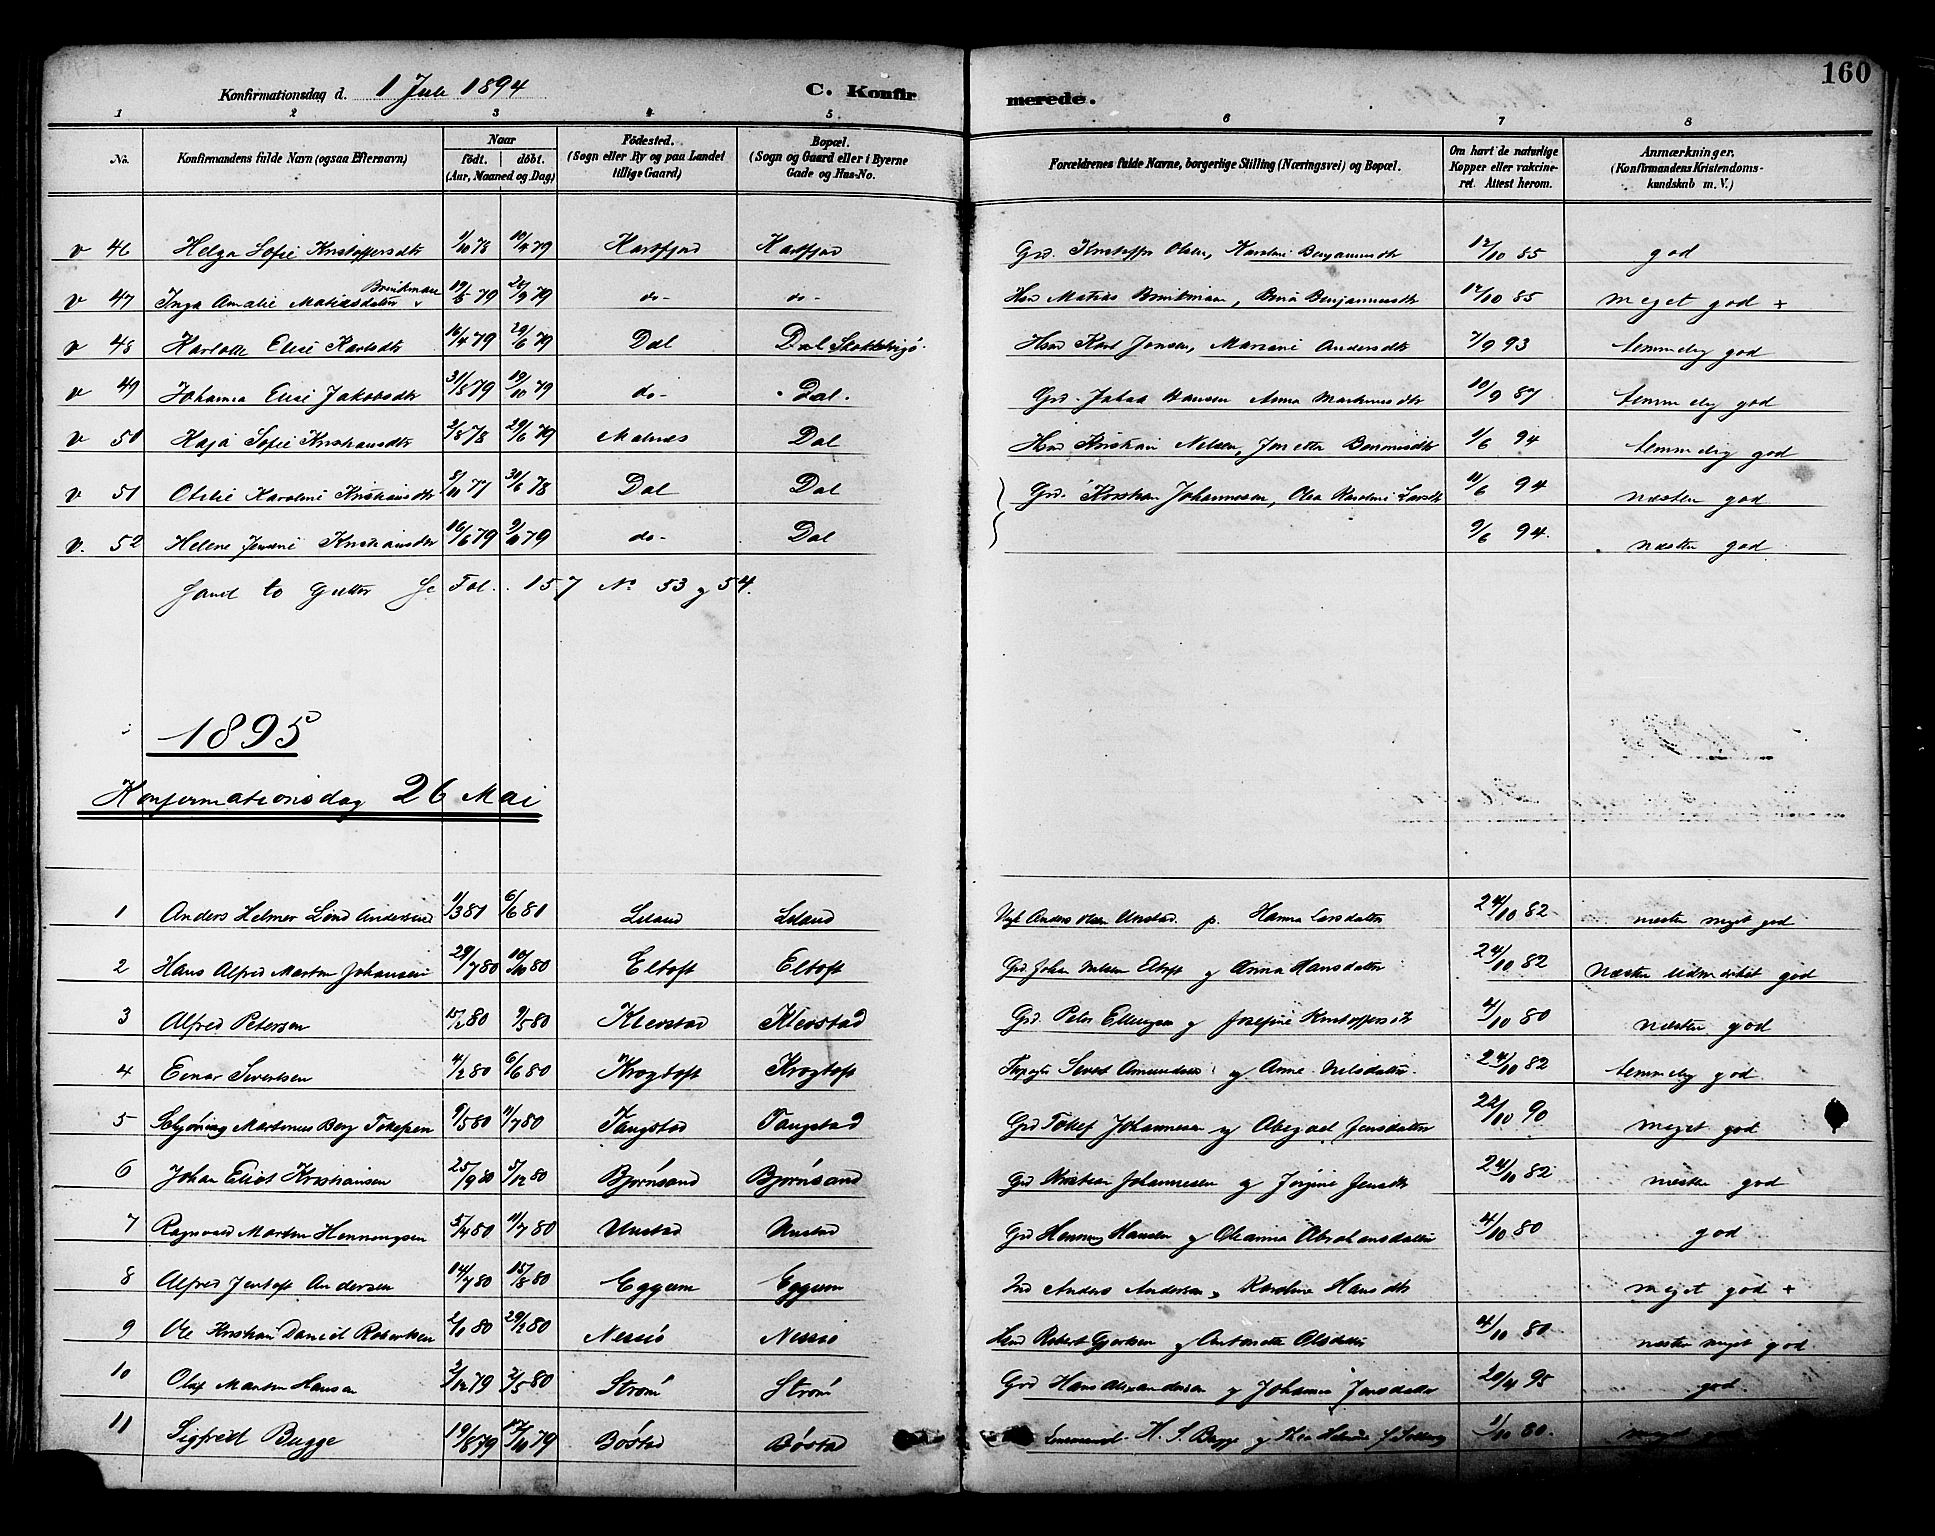 160
Konfirmationsdag d. 1 Juli 1894 C. Konfirmerede.
1 2 3 4 5 6 7 8
No. Konfirmandens fulde Navn (ogsaa Efternavn) Naar født. døbt. (Aar, Maaned og Dag) Fødested. (Sogn eller By og paa Landet tillige Gaard) Bopæl. (Sogn og Gaard eller i Byerne Gade og Hus-No. Forældrenes fulde Navne, borgerlige Stilling (Næringsvei) og Bopæl. Om havt de naturlige Kopper eller vakcineret. Attest herom. Anmærkninger. (Konfirmandens Kristendomskundskab m. V.)
v 46 Helga Sofie Kristoffersdtr 1/10 78 10/4 79 Grd. Kristoffer Olsen, Karoline Benjaminsdtr 12/10 85 god
v 47 Inga Amalie Matiasdatter Brinkman 19/5 79 21/9 79 do- do- Hsd Matias Brinkman, Berit Benjaminsdtr 12/10 85 meget god +
v 48 Elise Karlsdtr 16/4 79 29/6 79 Dal Dal Hsd Karl Jensen, Andersdtr 7/9 93 temmelig god
v 49 Johanna Elise Jakobsdtr 31/8 79 19/10 79 do- Dal. Grd. Hansen Anna 10/9 87 temmelig god
v 50 Kaja Sofie Kristiansdtr 2/8 78 29/6 79 Malnes Dal Hsd Kristian Nilsen, 9/6 94 temmelig god
v 51 Otilie Karoline Kristiansdtr 8/10 77 30/6 78 Dal Dal Grd. Kristian Johannesen, Olea Karoline Larsdtr 11/6 94 næsten god
v. 52 Helene Jensine Kristiansdtr 16/6 79 9/11 79 do- Dal 9/6 94. næsten god
samt to Gutter Se Fol. 157 No 53 og 54.
1895
Konfirmationsdag 26 Mai
1 Anders Helmer Lind Andersen 1/3 81 6/6 81 Leland Leland Anders Olsen Unstad Hanna Larsdatter 24/10 82 næsten meget god
2 Hans Alfred Martin Johansen 29/7 80 10/10 80 Eltoft Eltoft Grd. Johan Nilsen Eltoft og Anna Hansdatter 24/10 82 Næsten udmerket god
3 Alfred Petersen 15/2 80 9/5 80 Klevstad Klevstad Grd. Peter Ellingsen og Josefine Kristoffersdtr 4/10 80 næsten god
4 Einar Sivertsen 4/2 80 6/6 80 Krogtoft Krogtoft Sivert Amundsen og Anne Nilsdatter. 24/10 82 temmelig god
5 Schjøning Martinus Berg Tollefsen 9/5 80 11/7 80 Tangstad Tangstad Grd Tollef Johannesen og Abigael Jensdatter 22/10 90 meget god
6 Johan Eliot Kristiansen 25/9 80 5/12 80 Bjørnsand Bjørnsand Grd Kristian Johannesen og Jørgine Jensdtr 24/10 82 næsten god
7 Ragnvald Martin Henningsen 5/4 80 11/7 80 Unstad Unstad Grd Henning Hansen og Oleanna Abrahamsdatter 4/10 80 god
8 Alfred Jentoft Andersen 14/7 80 15/8 80 Eggum Eggum Ind Anders Andersen, Karoline Hansdtr meget god +
9 Ole Kristian Daniel Robertsen 2/1 80 29/2 80 Nessiø Nessiø Hsd Robert Gjertsen og Antonette Olsdatter 4/10 80 næsten meget god
10 Olaf Martin Hansen 2/12 79 2/5 80 Strøm Strøm Grd Hans Alexandersen og Johanna Jensdatter 20/4 95 god
11 Sigfred Bugge 19/8 79 12/10 79 Bøstad Bøstad Lensmand H. S. Bugge og Thea Helene f. Solberg 1/10 80. meget god